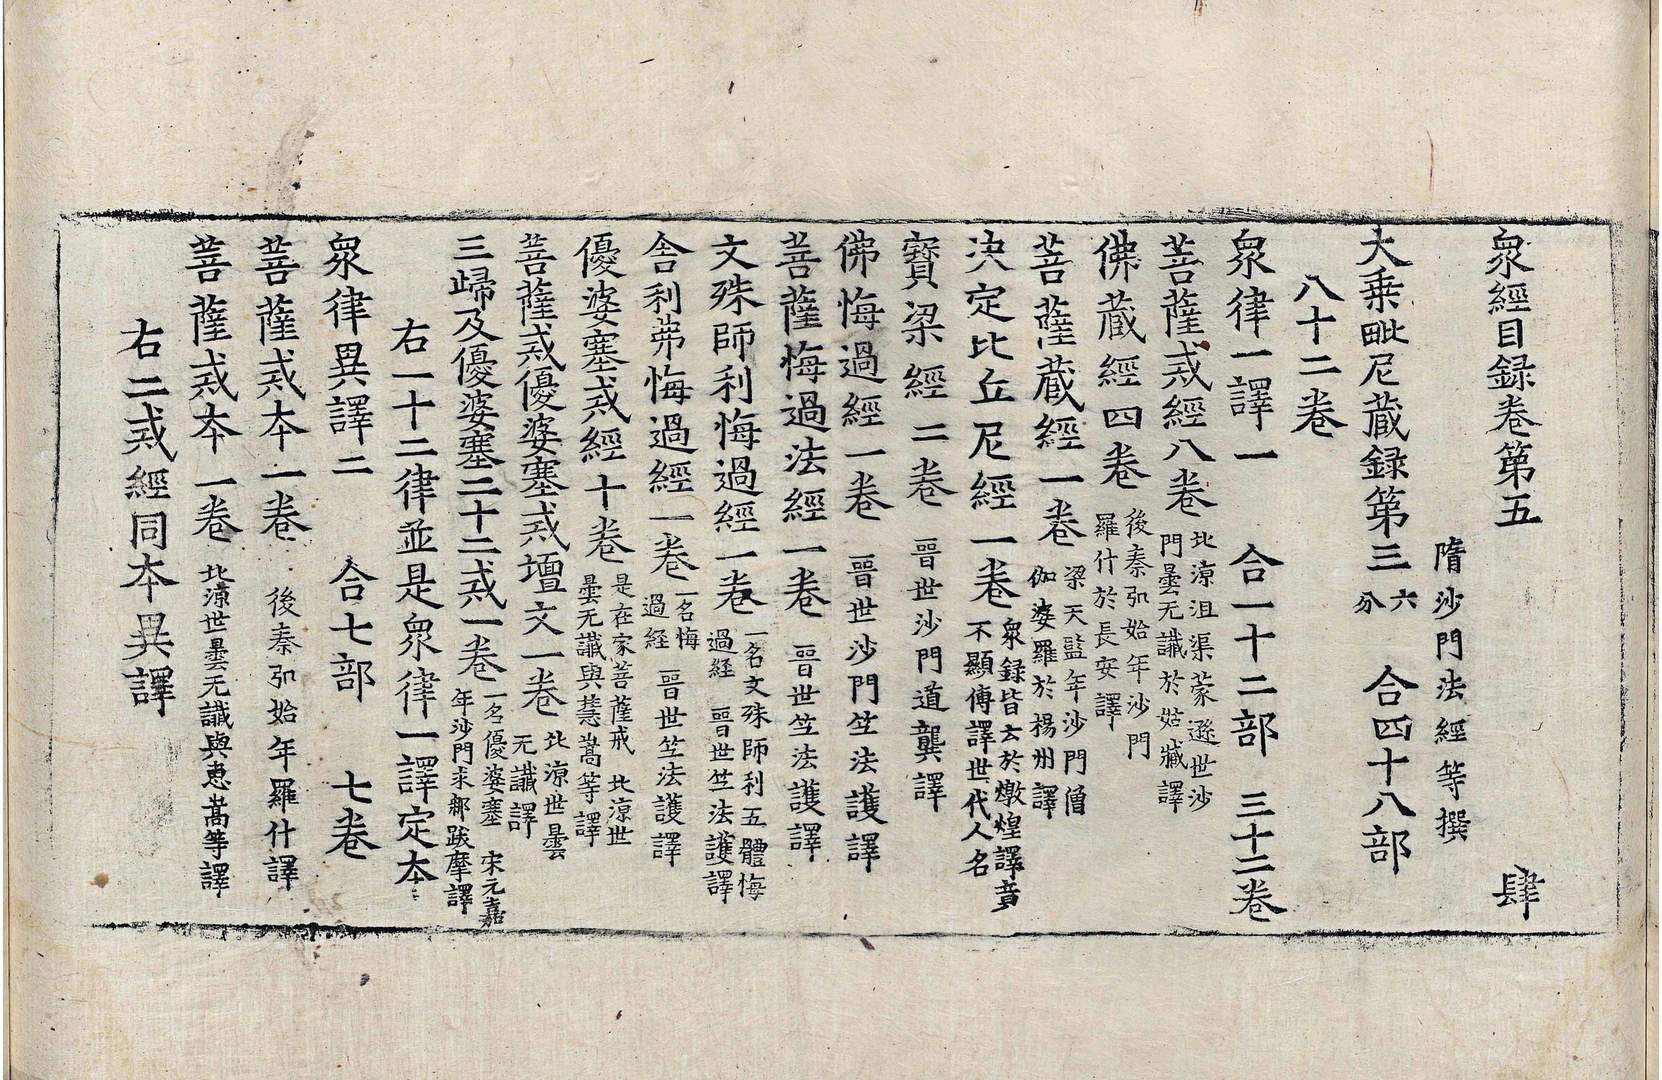 衆經目録卷第五 肆
隋沙門法經等撰
大乗毗尼蔵録第三 六分 合四十八部
八十二卷
衆律一譯一 合一十二部 三十二卷
菩薩戒經八卷 北涼沮渠蒙遜世沙門曇无讖於姑臧譯
佛蔵經四卷 後秦弘始年沙門羅什於長安譯
菩薩蔵經一卷 梁天監年沙門僧伽婆羅於楊州譯
決定比丘尼經一卷 衆録皆云於燉煌譯竟不顯傳譯世代人名
寶梁經二卷 晉世沙門道龔譯
佛悔過經一卷 晉世沙門竺法護譯
菩薩悔過法經一卷 晉世竺法護譯
文殊師利悔過經一卷 一名文殊師利五體悔過經 晉世竺法護譯
舎利弗悔過經一卷 一名悔過経 晉世竺法護譯
優婆塞戒經十卷 是在家菩薩戒 北涼世曇无讖與慧嵩等譯
菩薩戒優婆塞戒壇文一卷 北涼世曇无讖譯
三歸及優婆塞二十二戒一卷 一名優婆塞 宋元嘉年沙門求那跋摩譯
右一十二律並是衆律一譯定本
衆律異譯二 合七部 七卷
菩薩戒本一卷 後秦弘始年羅什譯
菩薩戒本一卷 北涼世曇无讖與惠嵩等譯
右二戒經同本異譯